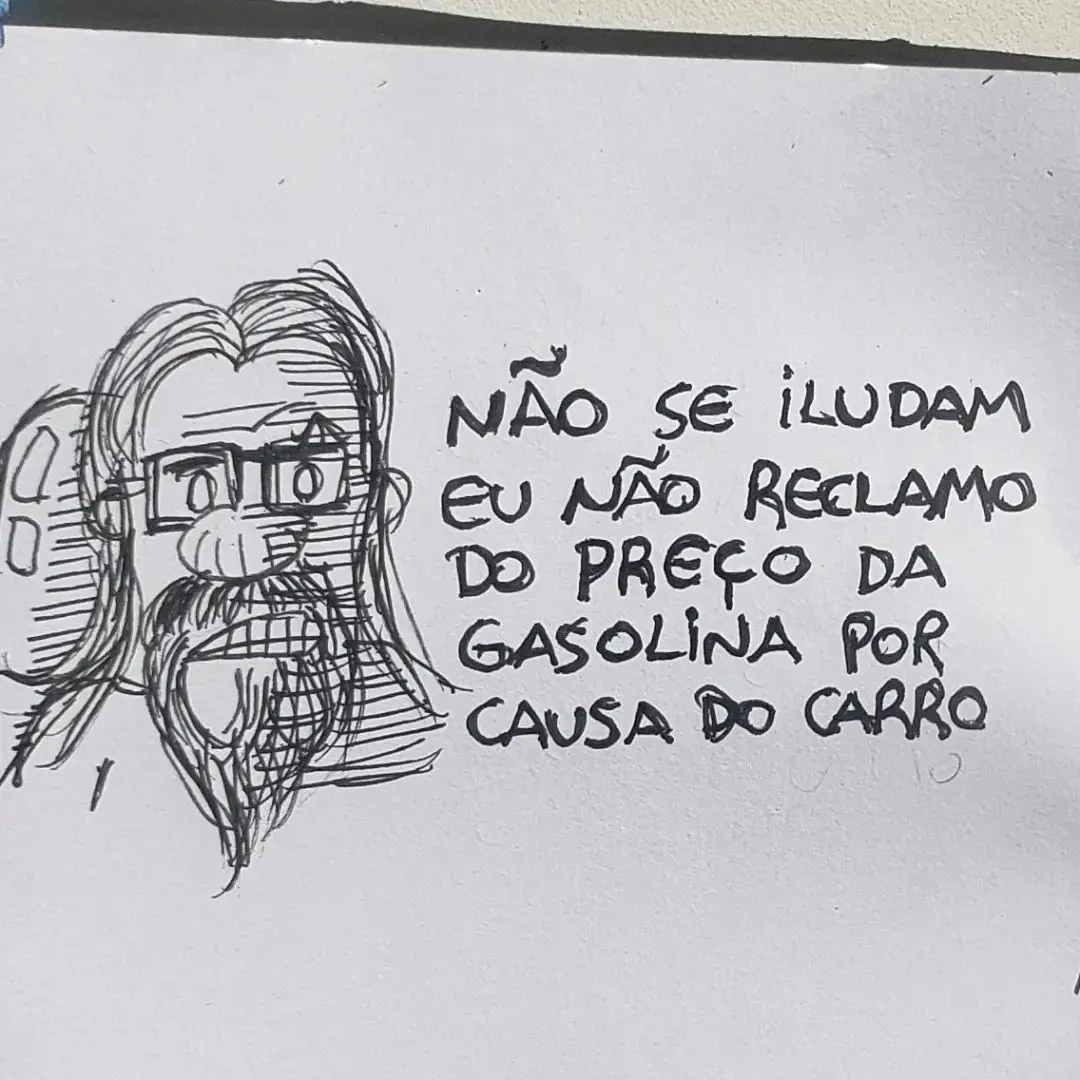 NÃO SE iLUDAM
EU NÃO RECLAMO
DO PREÇO DA
GASOLiNA POR
CAUSA DO CARRO